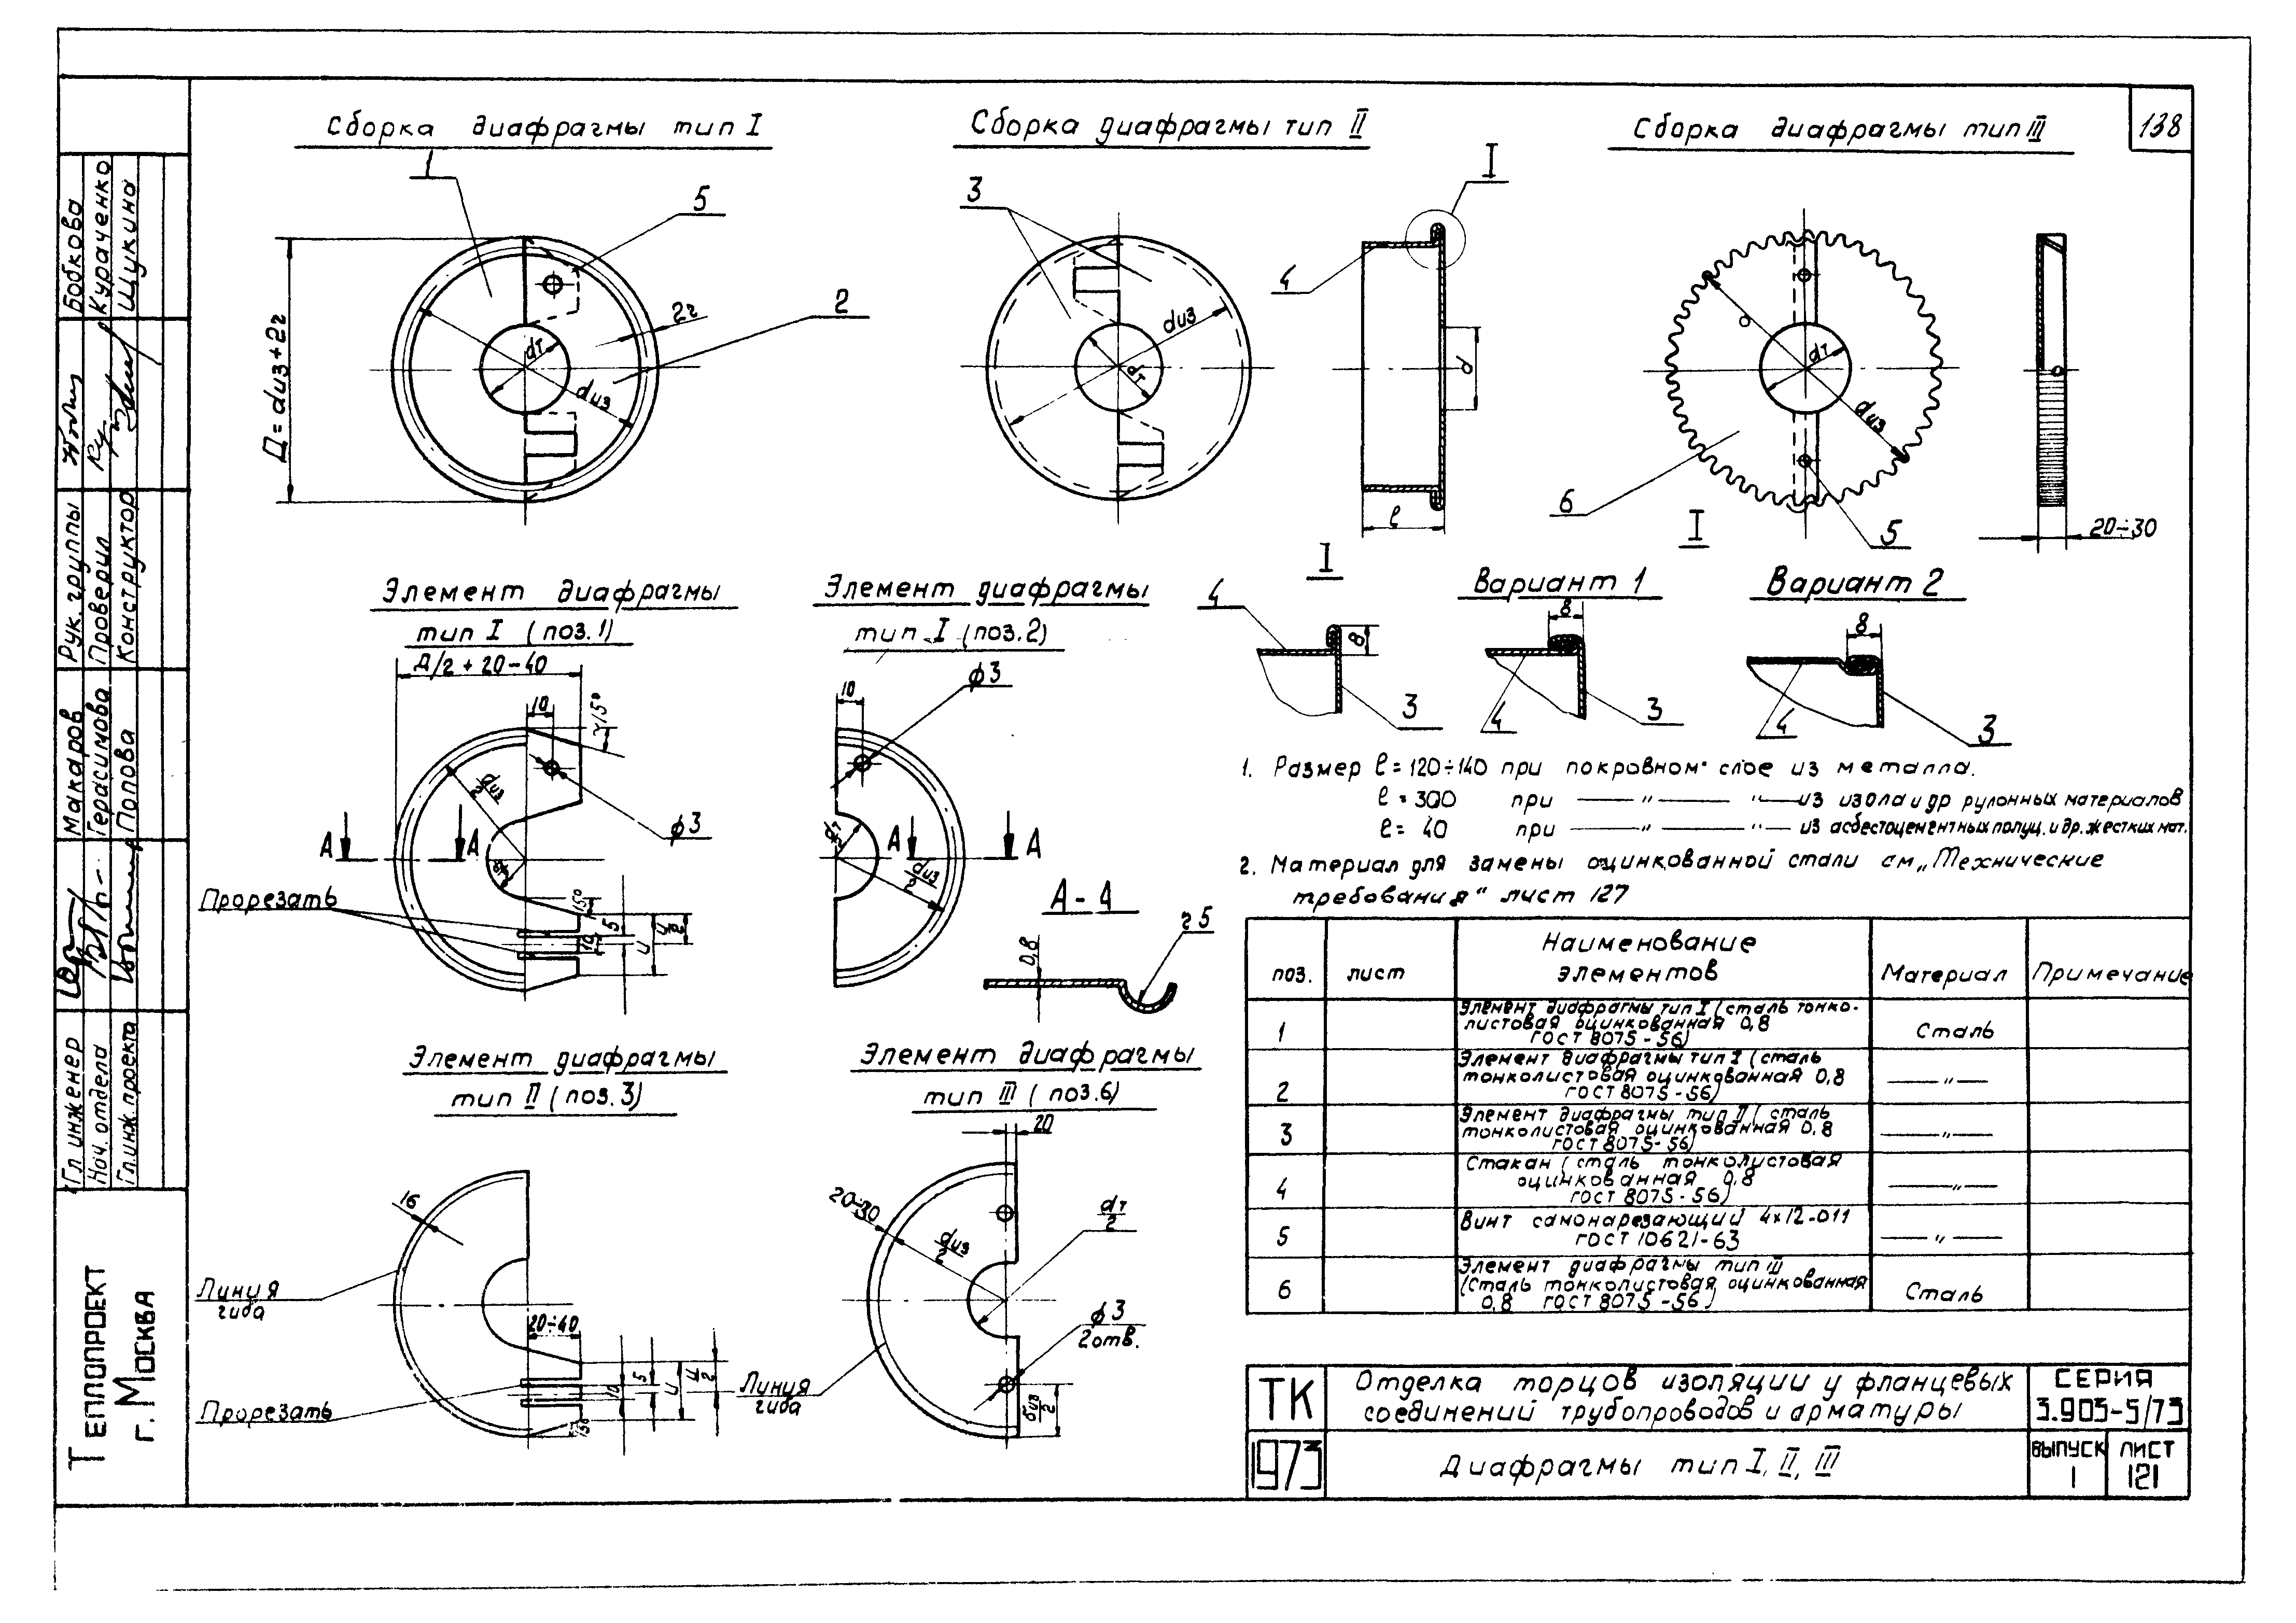 138
Сборка диафрагмы тип I
1
5
2
2г
dт
dиз
Д = dиз + 2г
Сборка диафрагмы тип II
3
4
I
dиз
dт
d
ℓ
Сборка диафрагмы тип III
d
dт
dиз
6
5
20÷30
Элемент диафрагмы
тип I (поз. 1)
Д/2 + 20-40
10
15°
dиз/2
ф3
А А
dт/2
Прорезать
15°
5
10
Элемент диафрагмы
тип I (поз. 2)
10
ф3
dт/2
dиз/2
А А
А-А
0,8
г 5
I
4
8
3
I
Вариант 1
8
4
3
Вариант 2
8
4
3
1. Размер ℓ = 120÷140 при покровном слое из металла.
ℓ = 300 при —— " —— " —— из изола и др рулонных материалов
ℓ = 40 при —— " —— " —— из асбестоцементных полуц. и др. жестких мат.
2. Материал для замены оцинкованной стали см „Технические
требования" лист 127
Элемент диафрагмы
тип II (поз. 3)
16
Линия
гиба
20÷40
5
10
15°
Прорезать
Элемент диафрагмы
тип III (поз. 6)
20
20÷30
dиз/2
dт/2
ф3
2 отв.
Линия
гиба
поз. лист Наименование элементов Материал Примечание
1 Элемент диафрагмы тип I (сталь тонко-
листовая оцинкованная 0,8
ГОСТ 8075-56) Сталь
2 Элемент диафрагмы тип I (сталь
тонколистовая оцинкованная 0,8
ГОСТ 8075-56) —— " ——
3 Элемент диафрагмы тип II (сталь
тонколистовая оцинкованная 0,8
ГОСТ 8075-56) —— " ——
4 Стакан (сталь тонколистовая
оцинкованная 0,8
ГОСТ 8075-56) —— " ——
5 Винт самонарезающий 4х12-011
ГОСТ 10621-63 —— " ——
6 Элемент диафрагмы тип III
(Сталь тонколистовая оцинкованная
0,8 ГОСТ 8075-56) Сталь
ТК
1973
Отделка торцов изоляции у фланцевых
соединений трубопроводов и арматуры
Диафрагмы тип I, II, III
СЕРИЯ
3.903-5/73
ВЫПУСК
1
ЛИСТ
121
Гл инженер Макаров
Нач. отдела Герасимова
Гл. инж. проекта Попова
Рук. группы Бобкова
Проверил Кураченко
Конструктор Щукина
ТЕПЛОПРОЕКТ
г. МОСКВА